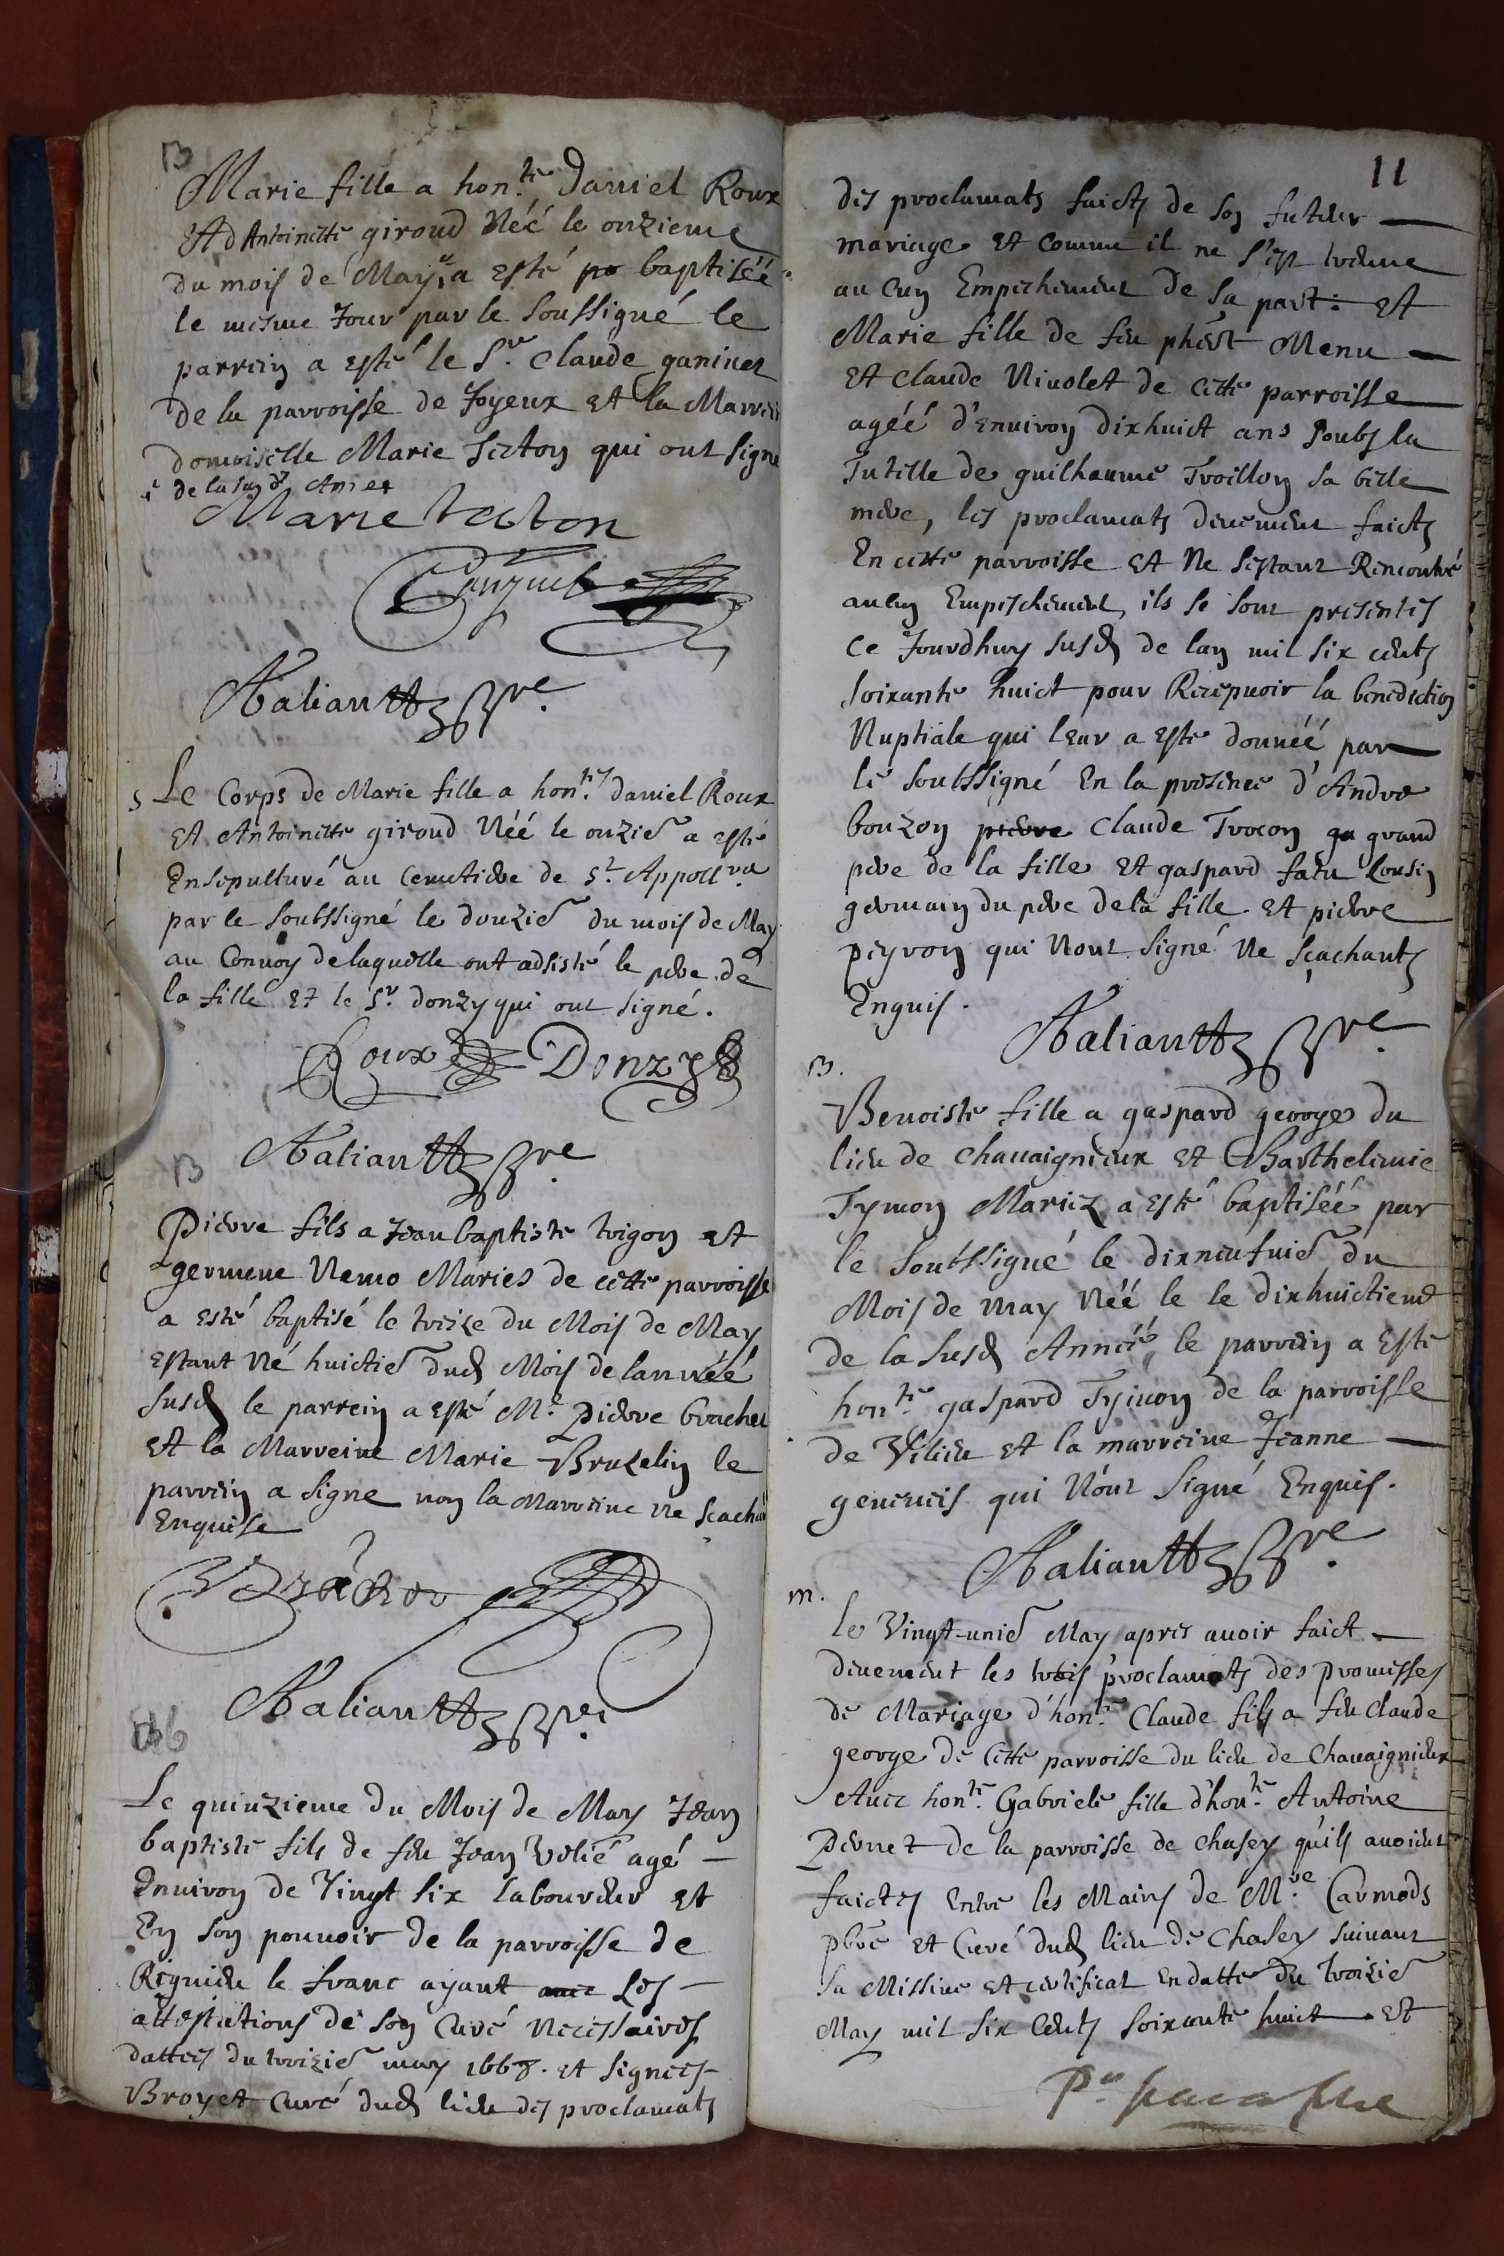 B
Marie fille a hon.te daniel Roux
Et d'Antoinette giroud Néé le onzieme
du mois de May, a esté po baptiséé
le mesme Jour par le soussigné le
parrein a esté le Sr. Claude
de la parroisse de Joyeux et la Marrein
domoiselle Marie qui ont signe
de la susd.
Marie
Taliantz
S Le Corps de Marie fille a hon.tes daniel Roux
Et Antoinette giroud Néé le onzie a esté
Ensepulturé au Cemetiere de St. Appoll
par le soubssigné le douzie du mois de May
au Convoy de laquelle ont adsisté le pere de
la fille Et le Sr. donzy qui ont signé.
Roux Donzy
Taliantz
B
Pierre fils a Jean baptiste trigon et
germene Nemo Mariés de cette parroisse
a esté baptisé le treize du Mois de May
estant Né huictie dud Mois de lannéé
susd le parrein a esté Me. Pierre brachet
Et la Marreine Marie Bruzelin le
parrein a signe non la Marreine ne scachan
Enquise
Brachet
Taliantz
Le quinzieme du Mois de May Jean
baptiste fils de feu Jean agé
Environ de Vingt six laboureur et
En son pouvoir de la parroisse de
Rignieu le franc ayant avec Les
attestations de son Curé necessaires
dattees du troizie may 1668. et signees
Broyet Curé dud lieu des proclamats
11
des proclamats faicts de son futeur
mariage Et comme il ne s'est treuve
aucun Empechement de sa part: Et
Marie fille de feu Menu
Et Claude Nivolet de cette parroisse
agéé d'Environ dixhuict ans soubs la
Tutelle de guilhaume Troillon sa belle
mere, les proclamats deuement faicts
En cette parroisse Et ne sestant Rencontré
aucun Empeschement, ils se sont presentés
Ce Jourdhuy susd de lan mil six cents
soixante huict pour Recepvoir la benediction
Nuptiale qui leur a esté donnéé par
le soubssigné En la presence d'Andre
bouzon pierre Claude Trocon ga grand
pere de la fille Et gaspard fatu Cousin
germain du pere de la fille Et pierre
peyron qui n'ont signé Ne sçachants
Enquis.
Taliantz
B.
Benoiste fille a gaspard george du
lieu de Chavaignieux Et Barthelemie
Tymon Mariez a esté baptiséé par
le soubssigné le dixneufuie du
Mois de may Néé le le dixhuictieme
de la susd Annéé, le parrein a esté
hon.te gaspard Tymon de la parroisse
de Vilieu Et la marreine Jeanne
geneveis qui N'ont signé Enquis.
Taliantz
m.
le Vingt-unie May apres avoir faict
deuement les trois proclamats des promesses
de Mariage d'hon.te Claude fils a feu Claude
george de cette parroisse du lieu de Chavaignieux
Avec hon.te Gabriele fille d'hon.te Antoine
Pernet de la parroisse de Chasey qu'ils avoient
faictes Entre les Mains de M.re Carmods
pbre et Curé dud lieu de Chasey suivant
sa Missive et certificat En datte du troizie
May mil six cents soixante huict Et